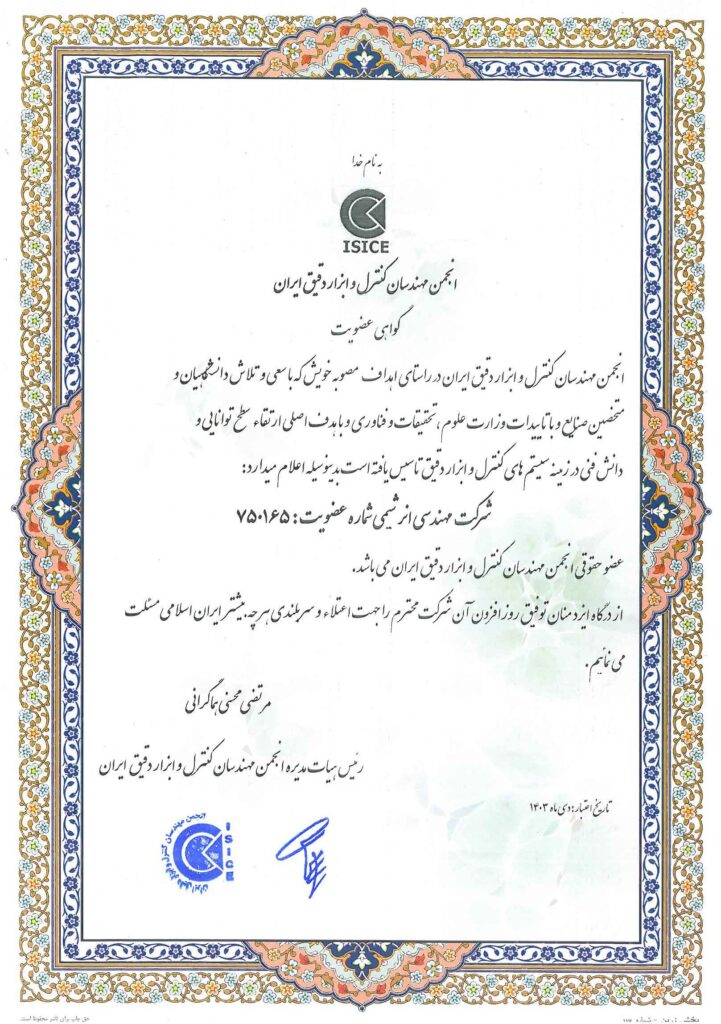 به نام خدا
ISICE
انجمن مهندسان کنترل و ابزار دقیق ایران
گواهی عضویت
انجمن مهندسان کنترل و ابزار دقیق ایران در راستای اهداف مصوبه خویش که با سعی و تلاش دانشگاهیان و
متخصصین صنایع و با تاییدات وزارت علوم، تحقیقات و فناوری و با هدف اصلی ارتقاء سطح توانایی و
دانش فنی در زمینه سیستم های کنترل و ابزار دقیق تاسیس یافته است بدینوسیله اعلام میدارد:
شرکت مهندسی انرشیمی شماره عضویت: ۷۵۰۱۶۵
عضو حقوقی انجمن مهندسان کنترل و ابزار دقیق ایران می باشد.
از درگاه ایزد منان توفیق روز افزون آن شرکت محترم را جهت اعتلاء و سربلندی هرچه بیشتر ایران اسلامی مسئلت
می نمائیم.
مرتضی محسنی هماگرانی
رئیس هیات مدیره انجمن مهندسان کنترل و ابزار دقیق ایران
تاریخ اعتبار: دی ماه ۱۴۰۳
انجمن مهندسان کنترل و ابزار دقیق ایران
ISICE
حق چاپ برای ناشر محفوظ است